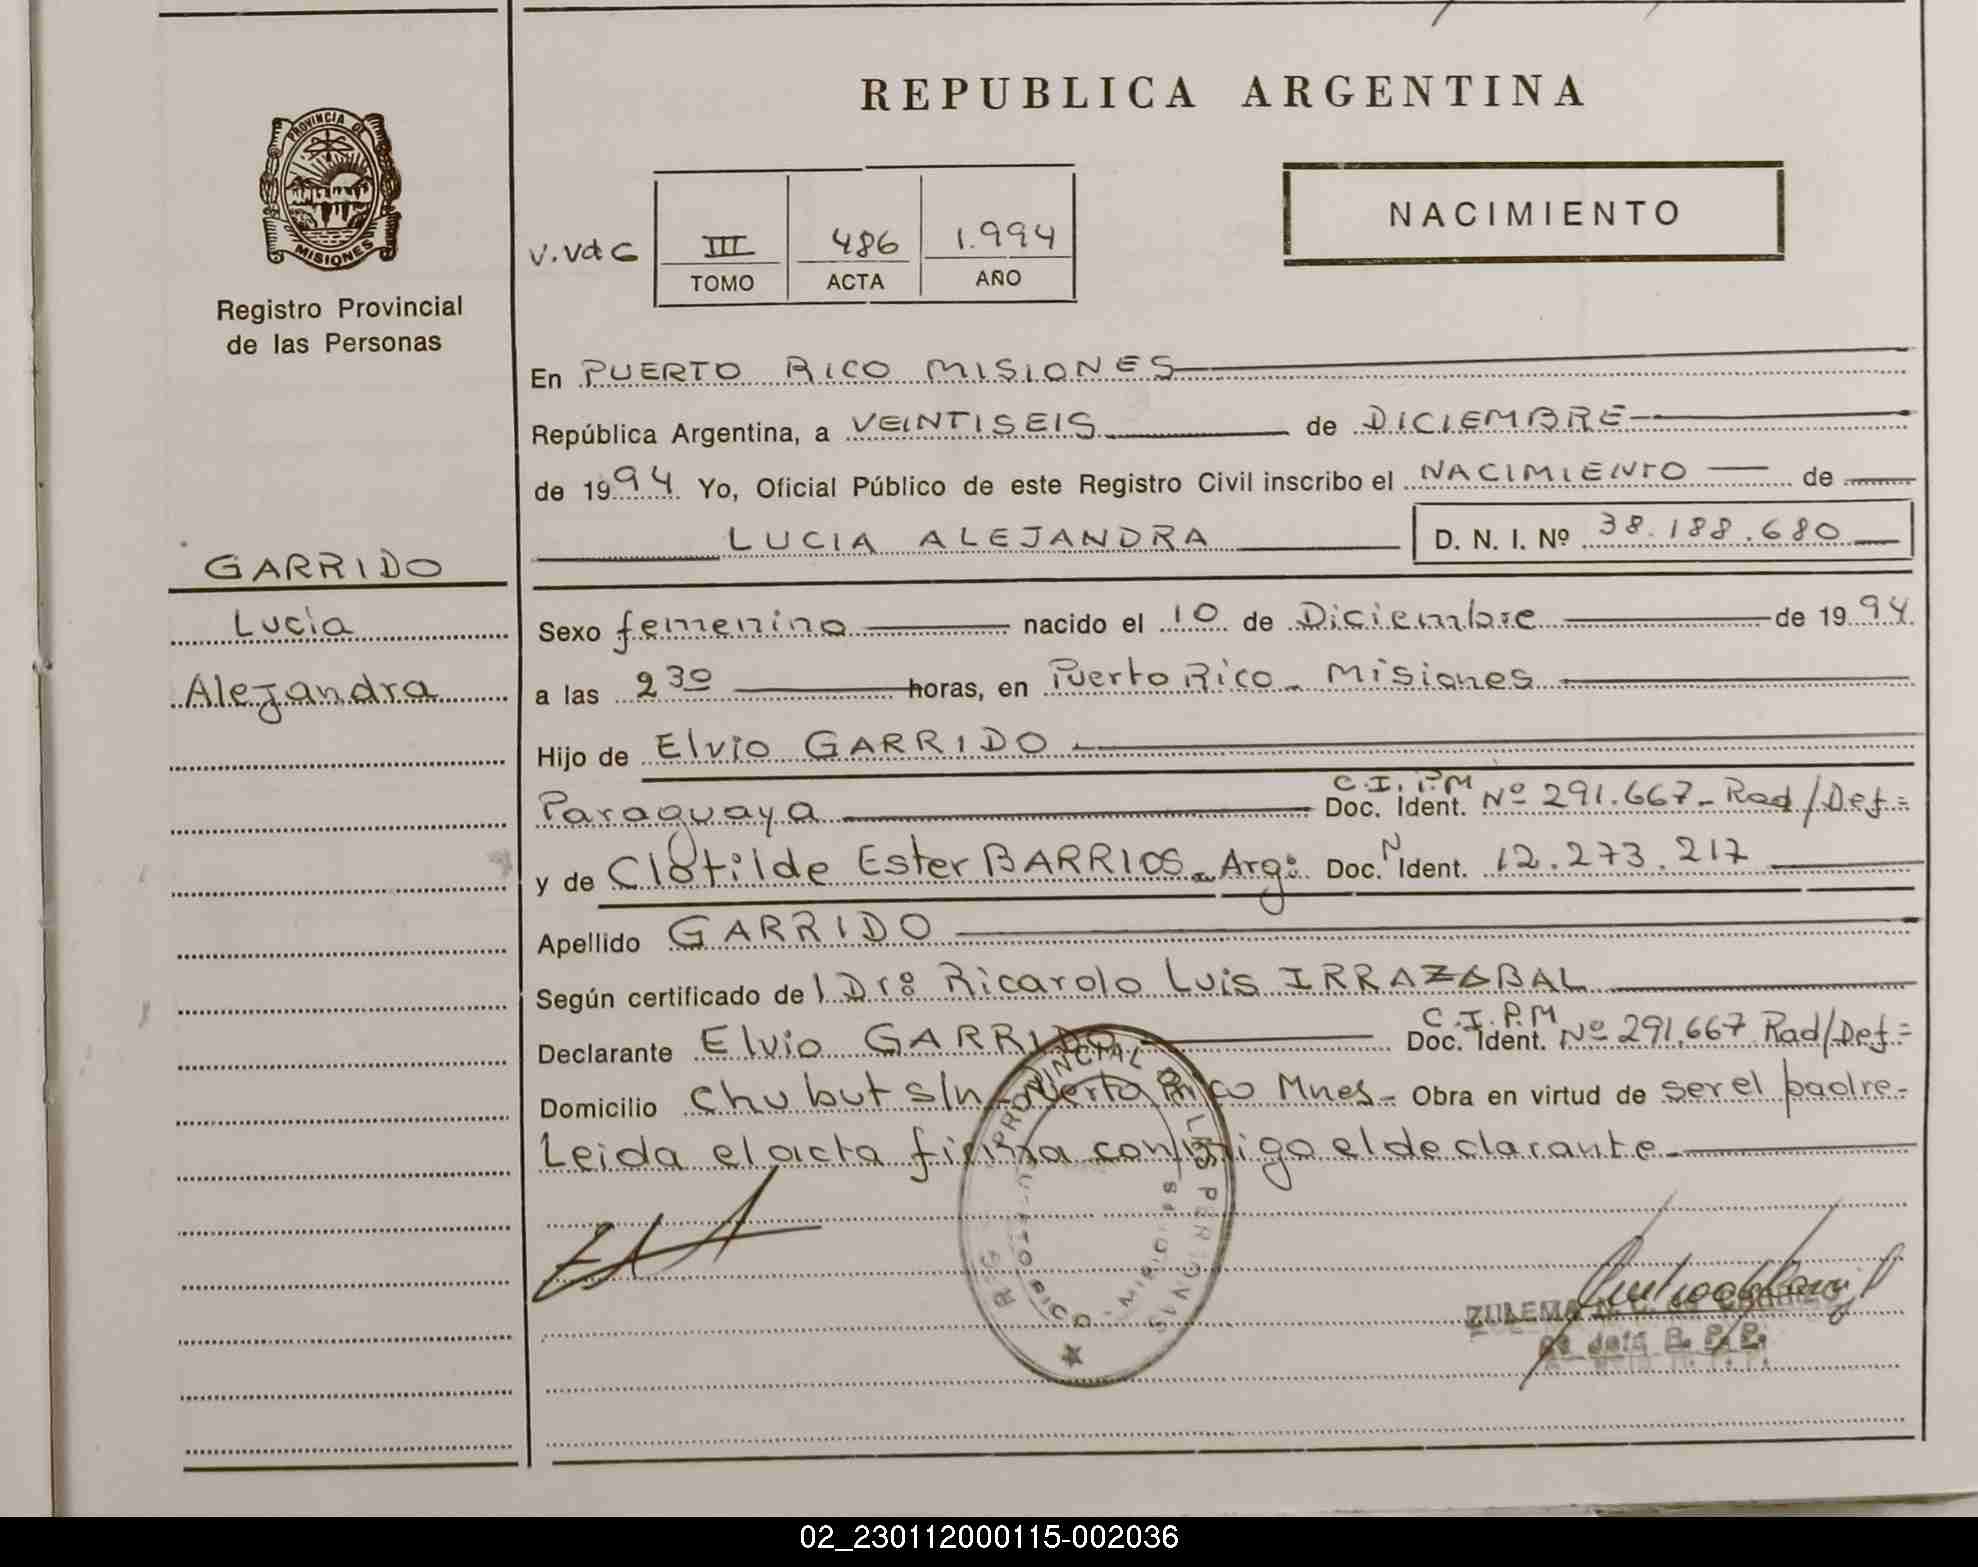 REPUBLICA ARGENTINA
PROVINCIA DE
MISIONES
Registro Provincial
de las Personas
NACIMIENTO
V.Vd C
III 486 1.994
TOMO ACTA AÑO
En PUERTO RICO MISIONES
República Argentina, a VEINTISEIS de DICIEMBRE
de 1994 Yo, Oficial Público de este Registro Civil inscribo el NACIMIENTO de
LUCIA ALEJANDRA D. N. I. Nº 38.188.680
GARRIDO
Lucía
Alejandra
Sexo femenino nacido el 10 de Diciembre de 1994
a las 2 30 horas, en Puerto Rico - Misiones
Hijo de Elvio GARRIDO
C.I.P.M
Paraguaya Doc. Ident. Nº 291.667- Rad/Def=
y de Clotilde Ester BARRIOS - Arg: Doc. N Ident. 12.273.217
Apellido GARRIDO
Según certificado de l Dr: Ricardo Luis IRRAZABAL
C.I.P.M
Declarante Elvio GARRIDO Doc. Ident. Nº 291.667 Rad/Def=
Domicilio Chubut s/n Puerto Rico Mnes - Obra en virtud de ser el padre-
Leida el acta firma conmigo el declarante-
PROVINCIAL DE LAS PERSONAS
MISIONES
ZULEMA
R. P. P.
02_230112000115-002036